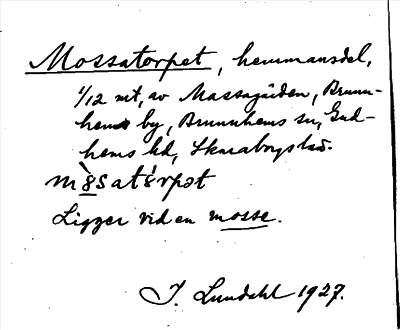 Mossatorpet, hemmansdel,
1/12 mt, av Massagården, Brunn-
hems by, Brunnhems sn, Gud-
hems hd, Skaraborgs län.
Ligger vid en mosse.
J. Lundahl 1927.